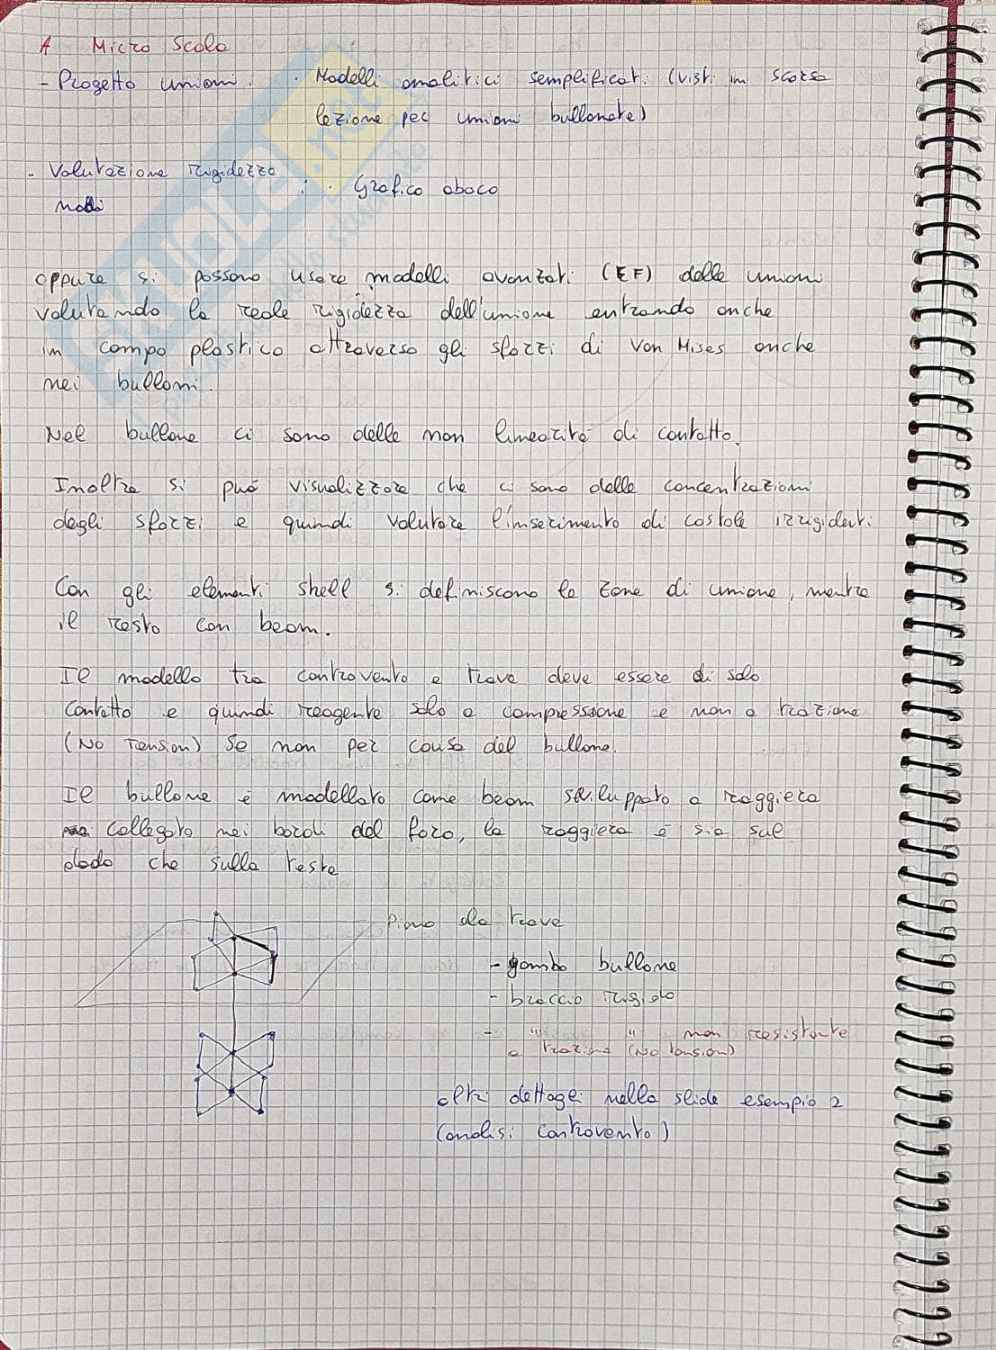 A Micro Scala
- Progetto unioni. · Modelli analitici semplificati (visti in scorsa
lezione per unioni bullonate)
- Valutazione rigidezza
nodi : · Grafico abaco
oppure si possono usare modelli avanzati (EF) delle unioni
valutando la reale rigidezza dell'unione entrando anche
in campo plastico attraverso gli sforzi di Von Mises anche
nei bulloni.
Nel bullone ci sono delle non linearità di contatto.
Inoltre si può visualizzare che ci sono delle concentrazioni
degli sforzi e quindi valutare l'inserimento di costole irrigidenti.
Con gli elementi shell si definiscono le zone di unione, mentre
il resto con beam.
Il modello tra controvento e trave deve essere di solo
contatto e quindi reagente solo a compressione e non a trazione
(No Tension) se non per causa del bullone.
Il bullone è modellato come beam sviluppato a raggiera
collegato nei bordi del foro, la raggiera è sia sul
dado che sulla testa
Piano ala trave
- gambo bullone
- braccio rigido
- " " non resistente
a trazione (No tension)
altri dettagli nella slide esempio 2
(analisi controvento)
SKUOLA.net